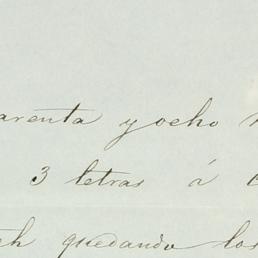 arenta y ocho
3 letras á
quedando los